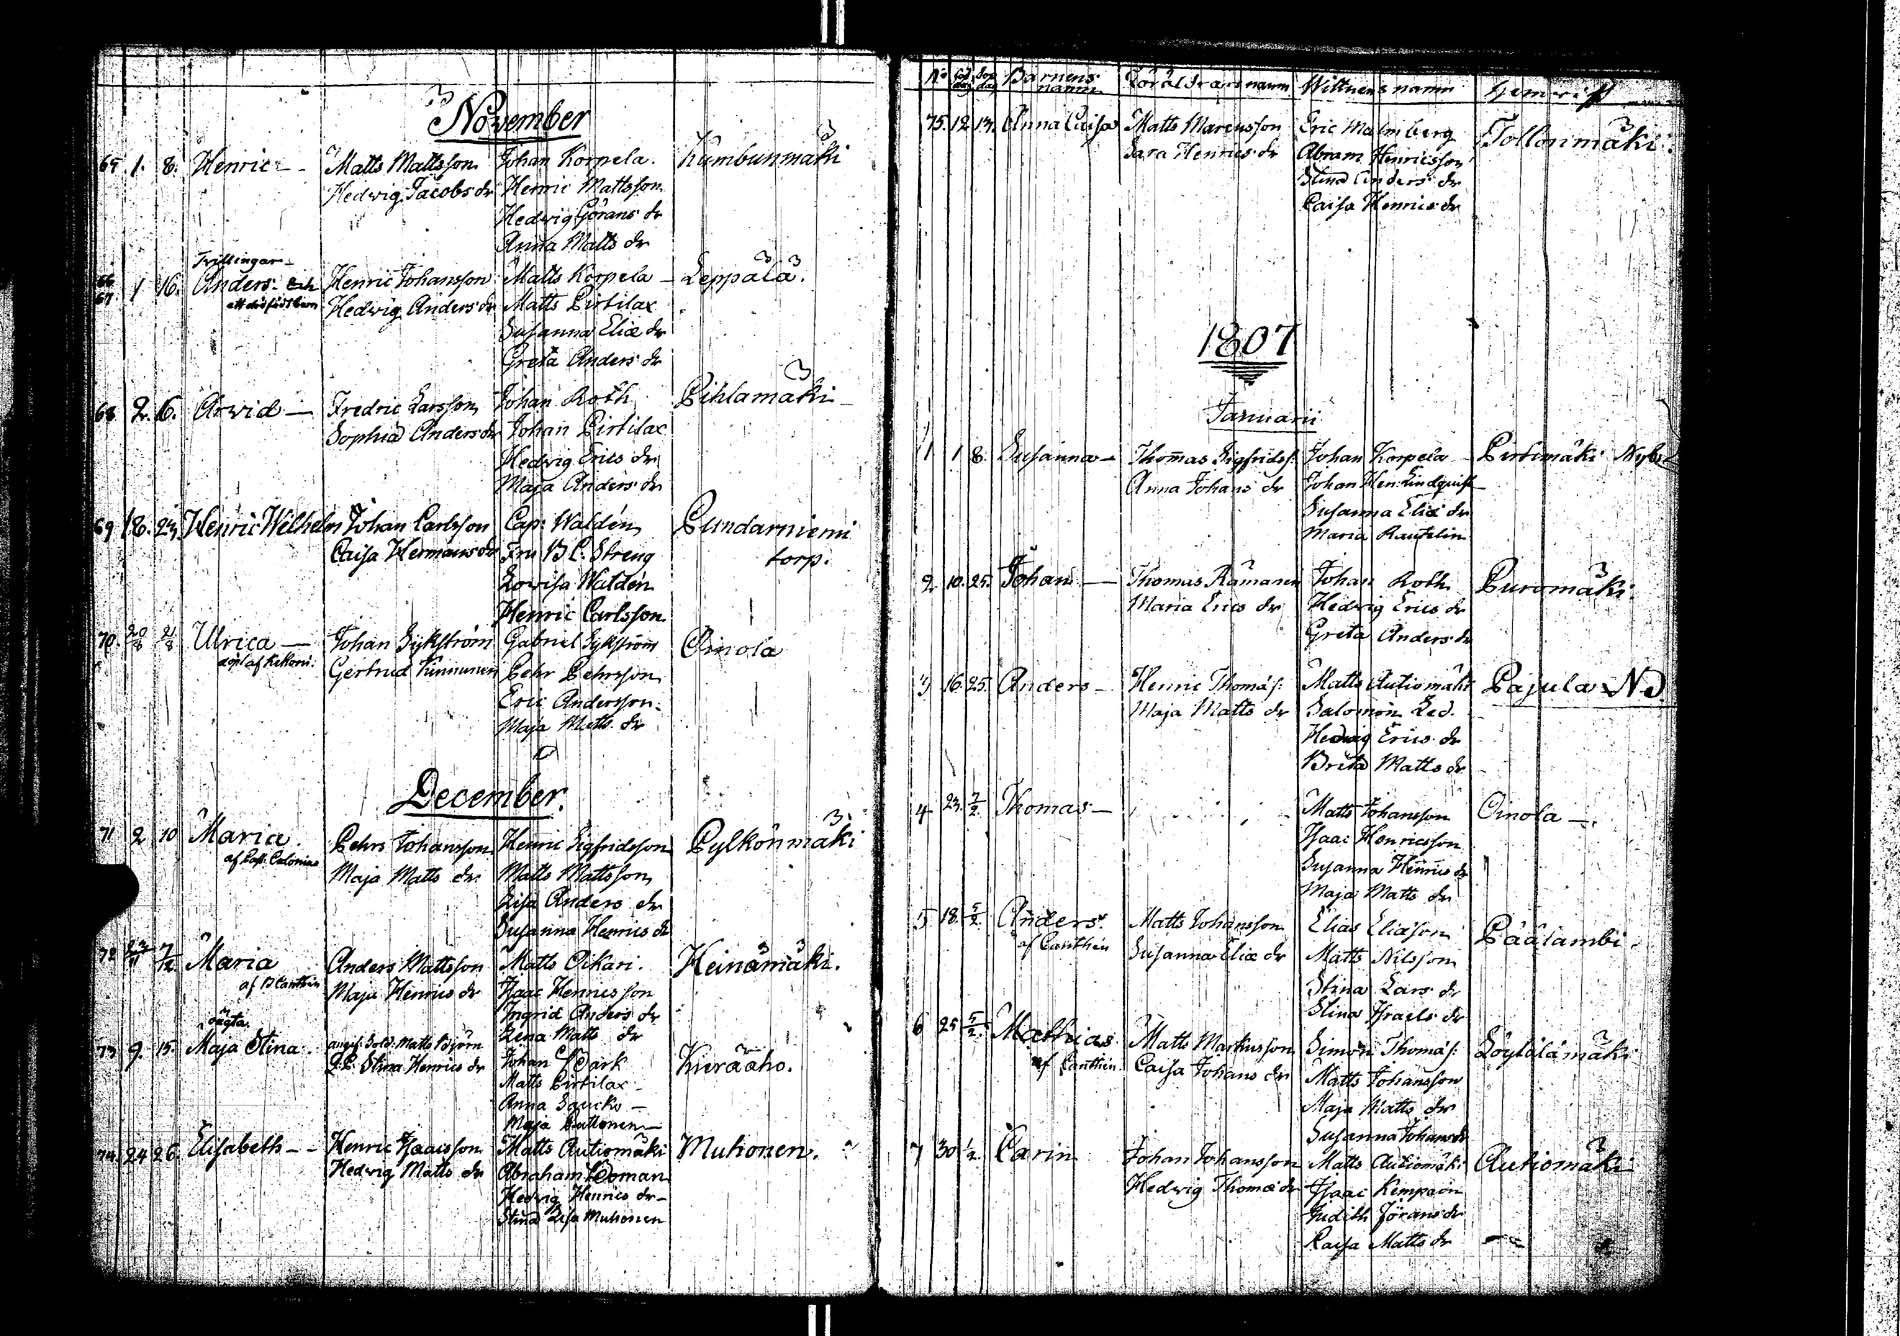 November
65 1. 8. Henric - Matts Mattsson Johan Korpela. Kumbunmäki
Hedvig Jacobs dr Henric Mattsson
Hedwig Görans dr
Anna Matts dr
Tvillingar
66 67 1 16. Anders. och Henric Johansson Matts Korpela - Leppälä.
ett dödfödt barn Hedwig Anders dr Matts Pirtilax
Susanna Eliæ dr
Greta Anders dr
68 2. 6. Arvid - Fredric Larsson Johan Roth Pihlamäki
Sophia Anders dr Johan Pirtilax
Hedwig Erics dr
Maja Anders dr
69 18. 23. Henric Wilhelm Johan Carlsson Cap: Waldén Pundarniemi
Caisa Hermans dr Fru B C. Streng torp.
Lovisa Waldén
Henric Carlsson
70. 20/8 21/8 Ulrica - Johan Sykström Gabriel Sykström Oinola
döpt af Kekoni. Gertrud Kinnunen Pehr Pehrsson
Eric Andersson
Maja Matts dr
December.
71 2 10 Maria. Pehr Johansson Henric Sigfridsson Pylkönmäki
af Past. Calonius Maja Matts dr Matts Mattsson
Lisa Anders dr
Susanna Henrics dr
72 23/11 7/12 Maria Anders Mattsson Matts Oikari. Heinämäki.
af B Canthin Maja Henrics dr Isaac Henricsson
Ingrid Anders dr
Lena Matts dr
oägta
73 9. 15. Maja Stina. angif. Sold. Matts Björn Johan Stark Kieräaho.
Q. P. Stina Henrics dr Matts Pirtilax
Anna
Maja Puttonen
74. 24 26. Elisabeth - Henric Isaacsson Matts Autiomäki Muhonen.
Hedwig Matts dr Abraham Loman
Hedwig Henrics dr
Stina Lisa Muhonen
No Föd. dag Döp. dag Barnens namn Föräldrarnas namn Wittnens namn Hemvist
75. 12. 13. Anna Caisa Matts Marcusson Eric Malmberg Tollonmäki.
Sara Henrics dr Abram Henricsson
Stina Anders dr
Caisa Henrics dr
1807
Januarii
1 1 8. Susanna - Thomas Sigfridss. Johan Korpela - Pirtimäki Nyb.
Anna Johans dr Johan Hen: Lindquist
Susanna Eliæ dr
Maria Rautelin
2 10. 25. Johan - Thomas Rämänen Johan Roth Puromäki.
Maria Erics dr Hedvig Erics dr
Greta Anders dr
3 16. 25. Anders - Henric Thomæs: Matts Autiomäki Pajula
Maja Matts dr Salomon Led.
Hedwig Erics dr
Brita Matts dr
4 23. 7/2 Thomas - Matts Johansson Oinola -
Isaac Henricsson
Susanna Henrics dr
Maja Matts dr
5 18. 5/2 Anders. Matts Johansson Elias Eliæson Päälambi
af Canthin Susanna Eliæ dr Matts Nilsson
Stina Lars dr
Stina Israels dr
6 25 5/2. Mathias Matts Markusson Simon Thomæs: Löytölämäki
af Canthin. Caisa Johans dr Matts Johansson
Maja Matts dr
Susanna Johans dr
7 30 1/2. Carin Johan Johansson Matts Autiomäki Autiomäki
Hedwig Thomæ dr Isaac Kempain
Judith Jörans dr
Kaisa Matts dr